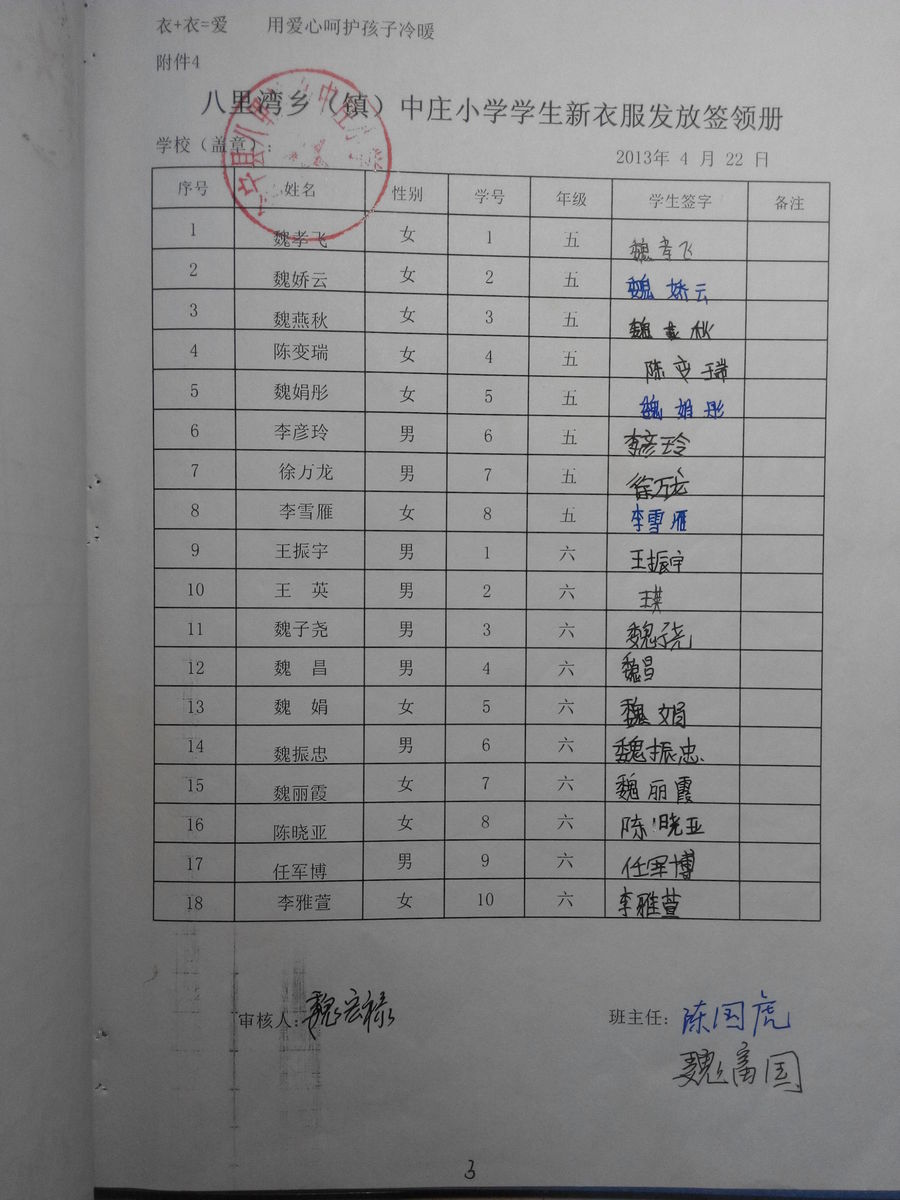 衣+衣=爱 用爱心呵护孩子冷暖
附件4
八里湾乡（镇）中庄小学学生新衣服发放签领册
学校（盖章）： 2013年 4 月 22 日
序号 姓名 性别 学号 年级 学生签字 备注
1 魏孝飞 女 1 五 魏孝飞
2 魏娇云 女 2 五 魏娇云
3 魏燕秋 女 3 五 魏燕秋
4 陈变瑞 女 4 五 陈变瑞
5 魏娟彤 女 5 五 魏娟彤
6 李彦玲 男 6 五 李彦玲
7 徐万龙 男 7 五 徐万龙
8 李雪雁 女 8 五 李雪雁
9 王振宇 男 1 六 王振宇
10 王 英 男 2 六 王英
11 魏子尧 男 3 六 魏子尧
12 魏 昌 男 4 六 魏昌
13 魏 娟 女 5 六 魏娟
14 魏振忠 男 6 六 魏振忠
15 魏丽霞 女 7 六 魏丽霞
16 陈晓亚 女 8 六 陈晓亚
17 任军博 男 9 六 任军博
18 李雅萱 女 10 六 李雅萱
审核人：魏宏禄 班主任：陈国虎
魏富国
3